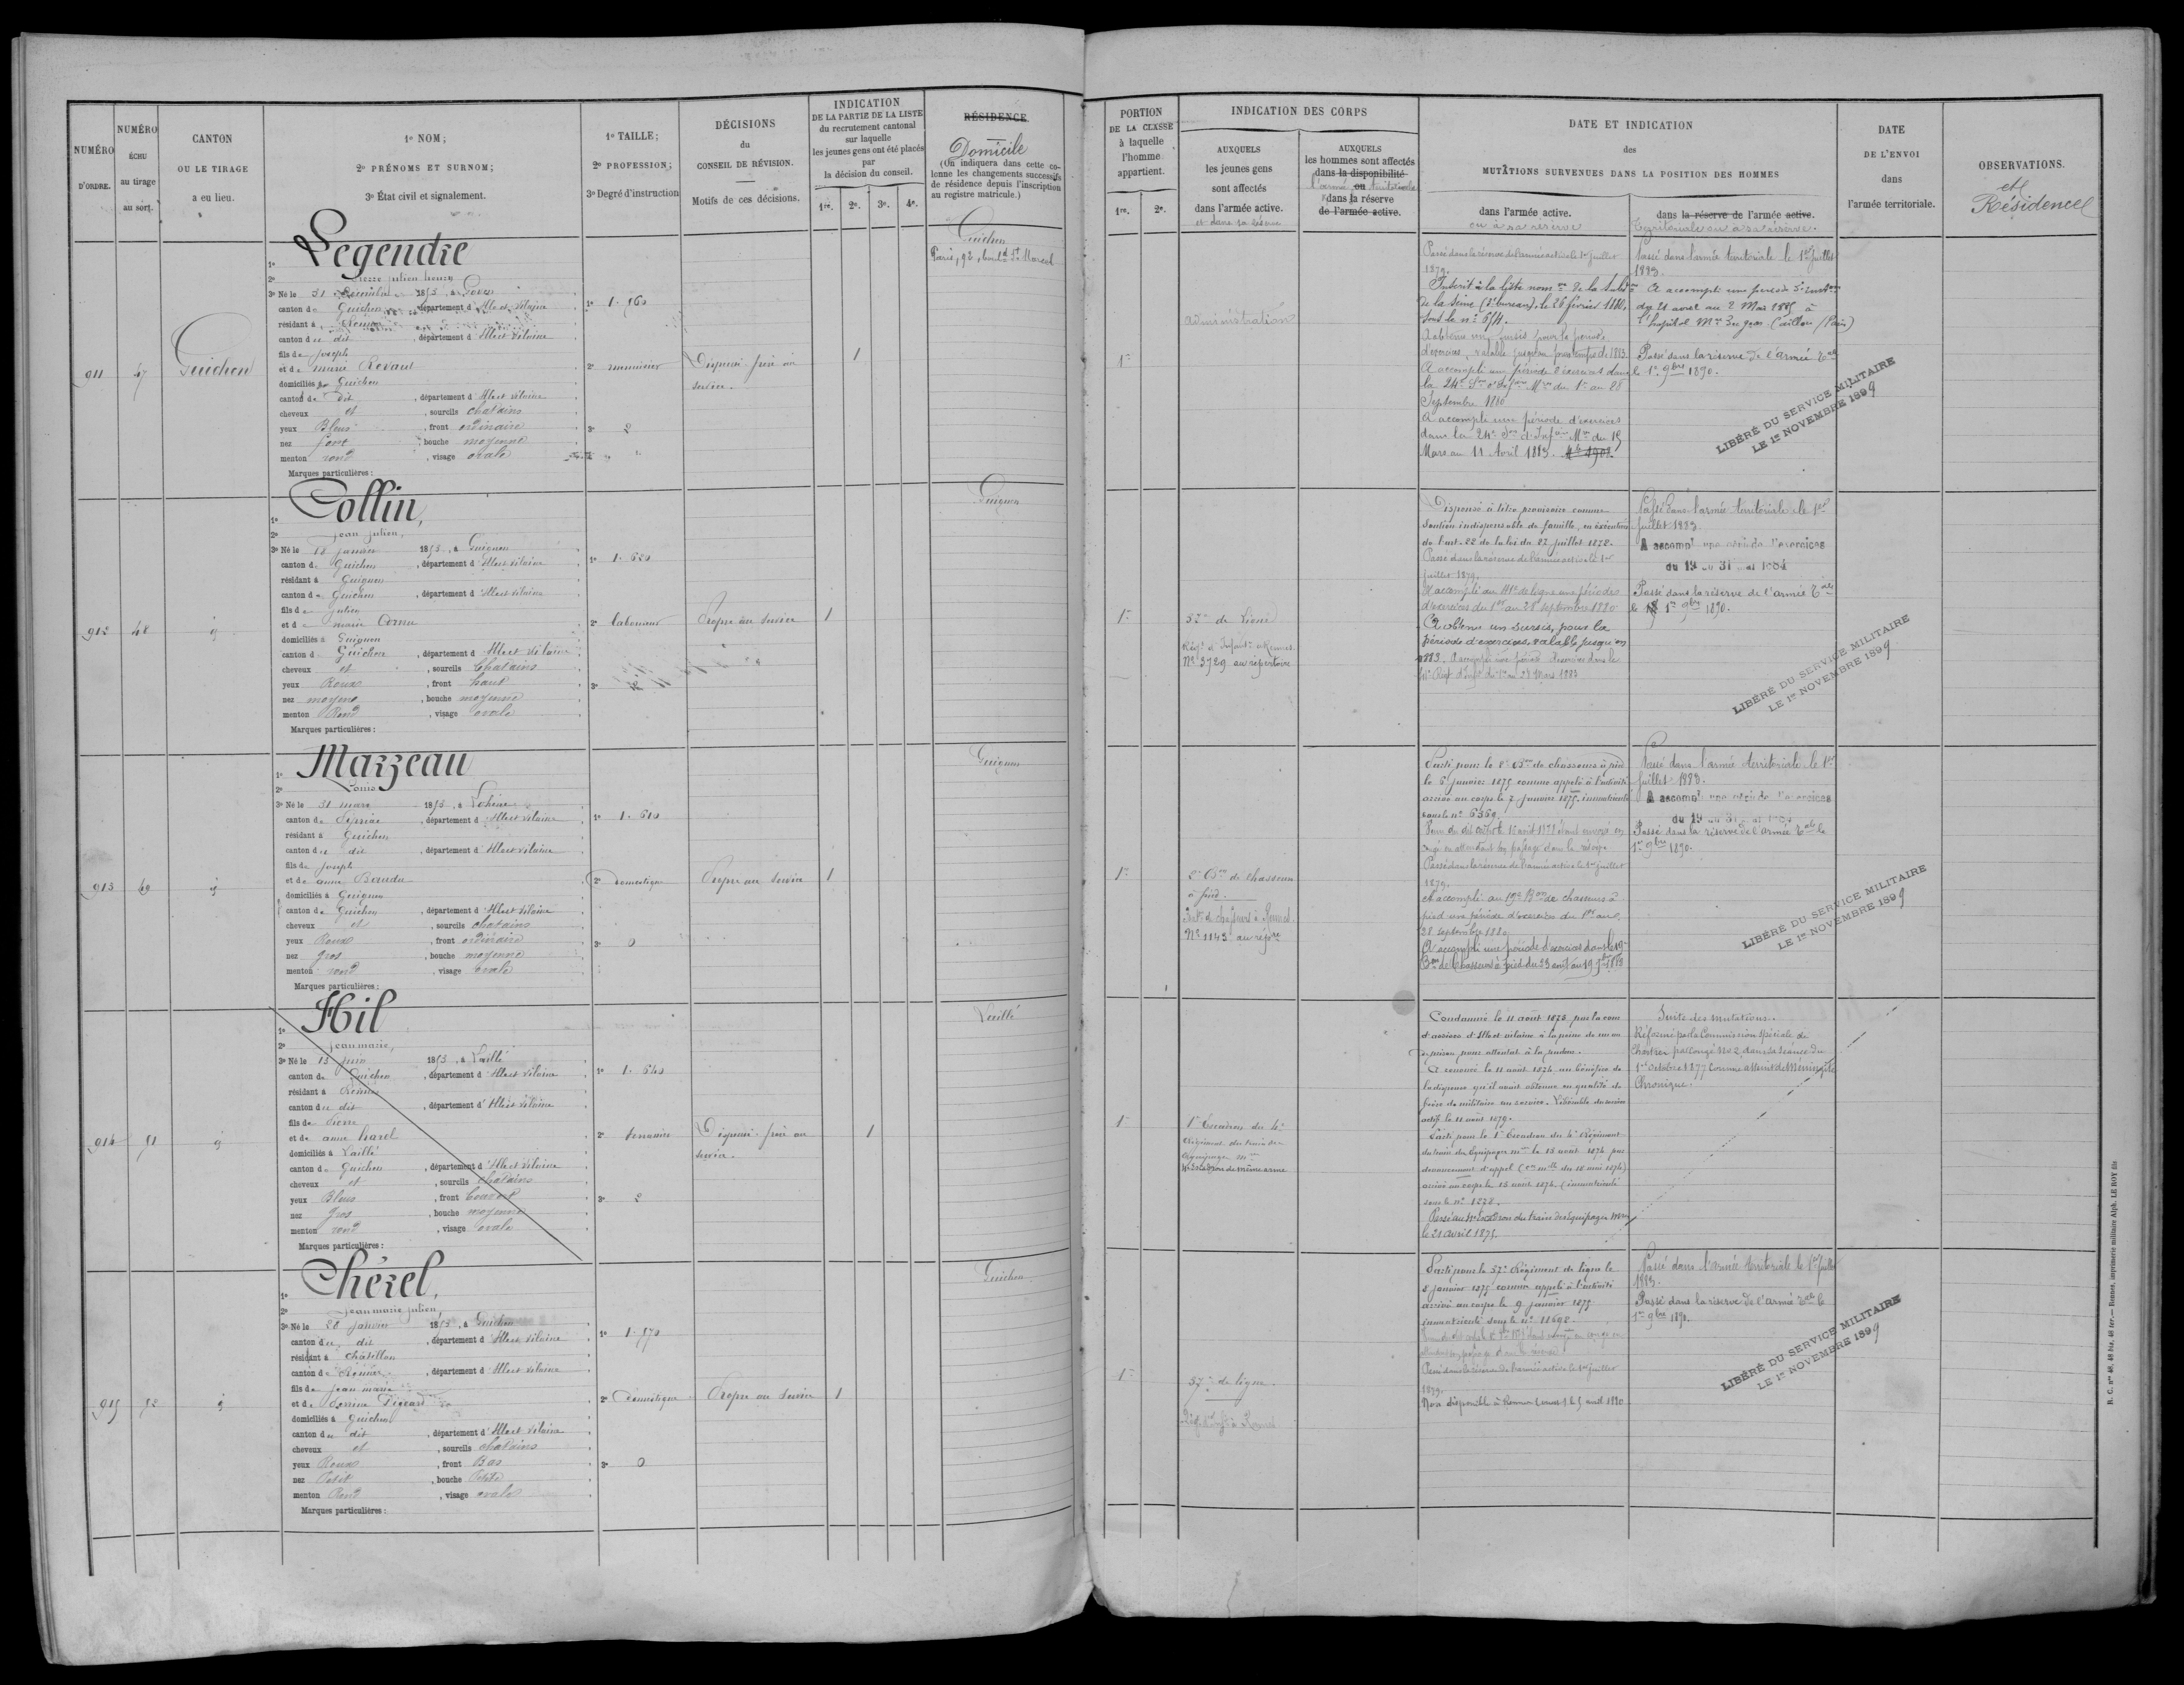 NUMÉRO
D'ORDRE.
NUMÉRO
ÉCHU
au tirage
au sort.
CANTON
OU LE TIRAGE
a eu lieu.
1º NOM;
2º PRÉNOMS ET SURNOM;
3º État civil et signalement.
1º TAILLE;
2º PROFESSION;
3º Degré d'instruction
DÉCISIONS
du
CONSEIL DE RÉVISION.
Motifs de ces décisions.
INDICATION
DE LA PARTIE DE LA LISTE
du recrutement cantonal
sur laquelle
les jeunes gens ont été placés
par
la décision du conseil.
1re. 2e. 3e. 4e.
RÉSIDENCE
Domicile
(On indiquera dans cette co-
lonne les changements successifs
de résidence depuis l'inscription
au registre matricule.)
PORTION
DE LA CLASSE
à laquelle
l'homme
appartient.
1re. 2e.
INDICATION DES CORPS
AUXQUELS
les jeunes gens
sont affectés
dans l'armée active.
et dans sa réserve
AUXQUELS
les hommes sont affectés
dans la disponibilité
l'armée ou territoriale
dans la réserve
de l'armée active.
DATE ET INDICATION
des
MUTATIONS SURVENUES DANS LA POSITION DES HOMMES
dans l'armée active.
ou à sa réserve
dans la réserve de l'armée active.
territoriale ou à sa réserve.
DATE
DE L'ENVOI
dans
l'armée territoriale.
OBSERVATIONS.
et
Résidence
911
47
Guichen
1º Legendre
2º Julien
3º Né le 31 Décembre 1853, à
canton de Guichen, département d'Ille et Vilaine
résidant à Rennes
canton du dit, département d'Ille et Vilaine
fils de Joseph
et de Marie
domiciliés à Guichen
canton du dit, département d'Ille et Vilaine
cheveux et, sourcils chatains
yeux Bleus, front ordinaire
nez fort, bouche moyenne
menton rond, visage ovale
Marques particulières:
1º 1.
2º menuisier
3º 2
Dispensé frère au
service.
1
Guichen
Paris, 92, boul.d St Marcel
1re
administration
Passé dans la réserve de l'armée active le 1er juillet
1879.
de la Seine (3e bureau), le 26 février 1880,
sous le nº
A obtenu un sursis pour la période
d'exercices, valable jusqu'au printemps de 1883
A accompli une période d'exercices dans
la 24e Son d'Infres Mres du 1er au 28
Septembre 1880
A accompli une période d'exercices
dans la 24e Son d'Infres Mres du 15
Mars au 11 Avril 1883.
Passé dans l'armée territoriale le 1er Juillet
1883.
A accompli une période d'instron
du 21 avril au 2 Mai 1885 à
l'hopital Mre du gros Caillou (Paris)
Passé dans la réserve de l'armée Tale
le 1er 9bre 1890.
LIBÉRÉ DU SERVICE MILITAIRE
LE 1er NOVEMBRE 1899
912
48
1º Collin,
2º Jean Julien,
3º Né le 18 janvier 1853, à Guignen
canton de Guichen, département d'Ille et Vilaine
résidant à Guignen
canton de Guichen, département d'Ille et Vilaine
fils de Julien
et de Marie Cornu
domiciliés à Guignen
canton de Guichen, département d'Ille et Vilaine
cheveux et, sourcils Chatains
yeux Roux, front haut
nez moyen, bouche moyenne
menton Rond, visage ovale
Marques particulières:
1º 1. 620
2º laboureur
3º
Propre au service
1
Guignen
1re
57e de ligne
Régt d'Infante à Rennes
Nº 3729 au répertoire
Dispensé à titre provisoire comme
soutien indispensable de famille, en exécution
de l'art. 22 de la loi du 27 juillet 1872.
Passé dans la réserve de l'armée active le 1er
juillet 1879.
A accompli au 41e de ligne une période
d'exercices du 1er au 28 septembre 1880
A obtenu un sursis, pour la
période d'exercices, valable jusqu'en
1883. A accompli une période d'exercices dans le
41e Régt d'Infie du 1er au 28 Mars 1883
Passé dans l'armée territoriale le 1er
Juillet 1883.
A accompi une période d'exercices
du 19 au 31 mai 1884
Passé dans la réserve de l'armée Tale
le 1er 9bre 1890.
LIBÉRÉ DU SERVICE MILITAIRE
LE 1er NOVEMBRE 1899
913
49
1º Marzeau
2º Louis
3º Né le 31 mars 1853, à Lohéac
canton de Pipriac, département d'Ille et Vilaine
résidant à Guichen
canton du dit, département d'Ille et Vilaine
fils de Joseph
et de Anne
domiciliés à Guignen
canton de Guichen, département d'Ille et Vilaine
cheveux et, sourcils chatains
yeux Roux, front ordinaire
nez gros, bouche moyenne
menton rond, visage ovale
Marques particulières:
1º 1. 610
2º domestique
3º 0
Propre au service
1
Guignen
1re
2e Bon de chasseurs
à pied.
Bat. de chasseurs à Rennes.
Nº 1143 au répre
Parti pour le 2e Bon de chasseurs à pied
le 6 janvier 1875 comme appelé à l'activité
arrivé au corps le 7 janvier 1875. immatriculé
sous le nº 6369.
congé en attendant son passage dans la réserve
Passé dans la réserve de l'armée active le 1er juillet
1879.
A accompli au 19e Bon de chasseurs à
pied une période d'exercices du 1er au
28 septembre 1880
A accompli une période d'exercices dans le 19e
Bon de Chasseurs à pied du 23 août au 19 7bre 1883
Passé dans l'armée territoriale le 1er
Juillet 1883.
A accompi une période d'exercices
du 19 au 31 mai 1884
Passé dans la réserve de l'armée Tale le
1er 9bre 1890.
LIBÉRÉ DU SERVICE MILITAIRE
LE 1er NOVEMBRE 1899
914
51
1º Hil
2º Jean marie,
3º Né le 13 juin 1853, à Laillé
canton de Guichen, département d'Ille et Vilaine
résidant à Rennes
canton du dit, département d'Ille et Vilaine
fils de Pierre
et de Anne harel
domiciliés à Laillé
canton de Guichen, département d'Ille et Vilaine
cheveux et, sourcils chatains
yeux Bleus, front Couvert
nez Gros, bouche moyenne
menton rond, visage ovale
Marques particulières:
1º 1. 640
2º
3º 2
Dispensé frère au
service.
1
Laillé
1re
1er Escadron du 4e
Régiment du train des
équipages mres
Escadron de même arme
Condamné le 11 août 1873 par la cour
d'assises d'Ille et vilaine à la peine de un an
de prison pour attentat à la pudeur.
A renoncé le 11 août 1874 au bénéfice de
la dispense qu'il avait obtenue en qualité de
frère de militaire au service. Libérable du service
actif le 11 août 1879.
Parti pour le 1er Escadron du 4e Régiment
du train des Équipages mres le 13 août 1874 par
devancement d'appel
arrivé au corps le 13 août 1874, immatriculé
sous le nº 1278.
Passé au Escadron du train des Equipages mres
le 21 avril 1875.
Suite des mutations.
Réformé par la Commission spéciale de
Chartres par congé nº 2, dans sa séance du
1er octobre 1877 comme atteint de Méningite
Chronique.
915
52
1º Chérel,
2º Jean marie Julien,
3º Né le 28 janvier 1853, à Guichen
canton du dit, département d'Ille et Vilaine
résidant à Châtillon
canton de Rennes, département d'Ille et Vilaine
fils de Jean marie
et de Perrine
domiciliés à Guichen
canton du dit, département d'Ille et Vilaine
cheveux et, sourcils chatains
yeux Roux, front Bas
nez Petit, bouche Petite
menton Rond, visage ovale
Marques particulières:
1º 1. 570
2º domestique
3º 0
Propre au service
1
Guichen
1re
57e de ligne.
Régt d'Infie à Rennes
Parti pour le 57e Régiment de ligne le
8 janvier 1875 comme appelé à l'activité
arrivé au corps le 9 janvier 1875
immatriculé sous le nº 11698
Passé dans la réserve de l'armée active le 1er juillet
1879.
Non disponible à Rennes (ouest) le 5 avril 1880
Passé dans l'armée territoriale le 1er Juillet
1883.
Passé dans la réserve de l'armée Tale le
1er 9bre 1890.
LIBÉRÉ DU SERVICE MILITAIRE
LE 1er NOVEMBRE 1899
R. C. nos 46, 48 bis, 48 ter. — Rennes, imprimerie militaire Alph. LE ROY fils